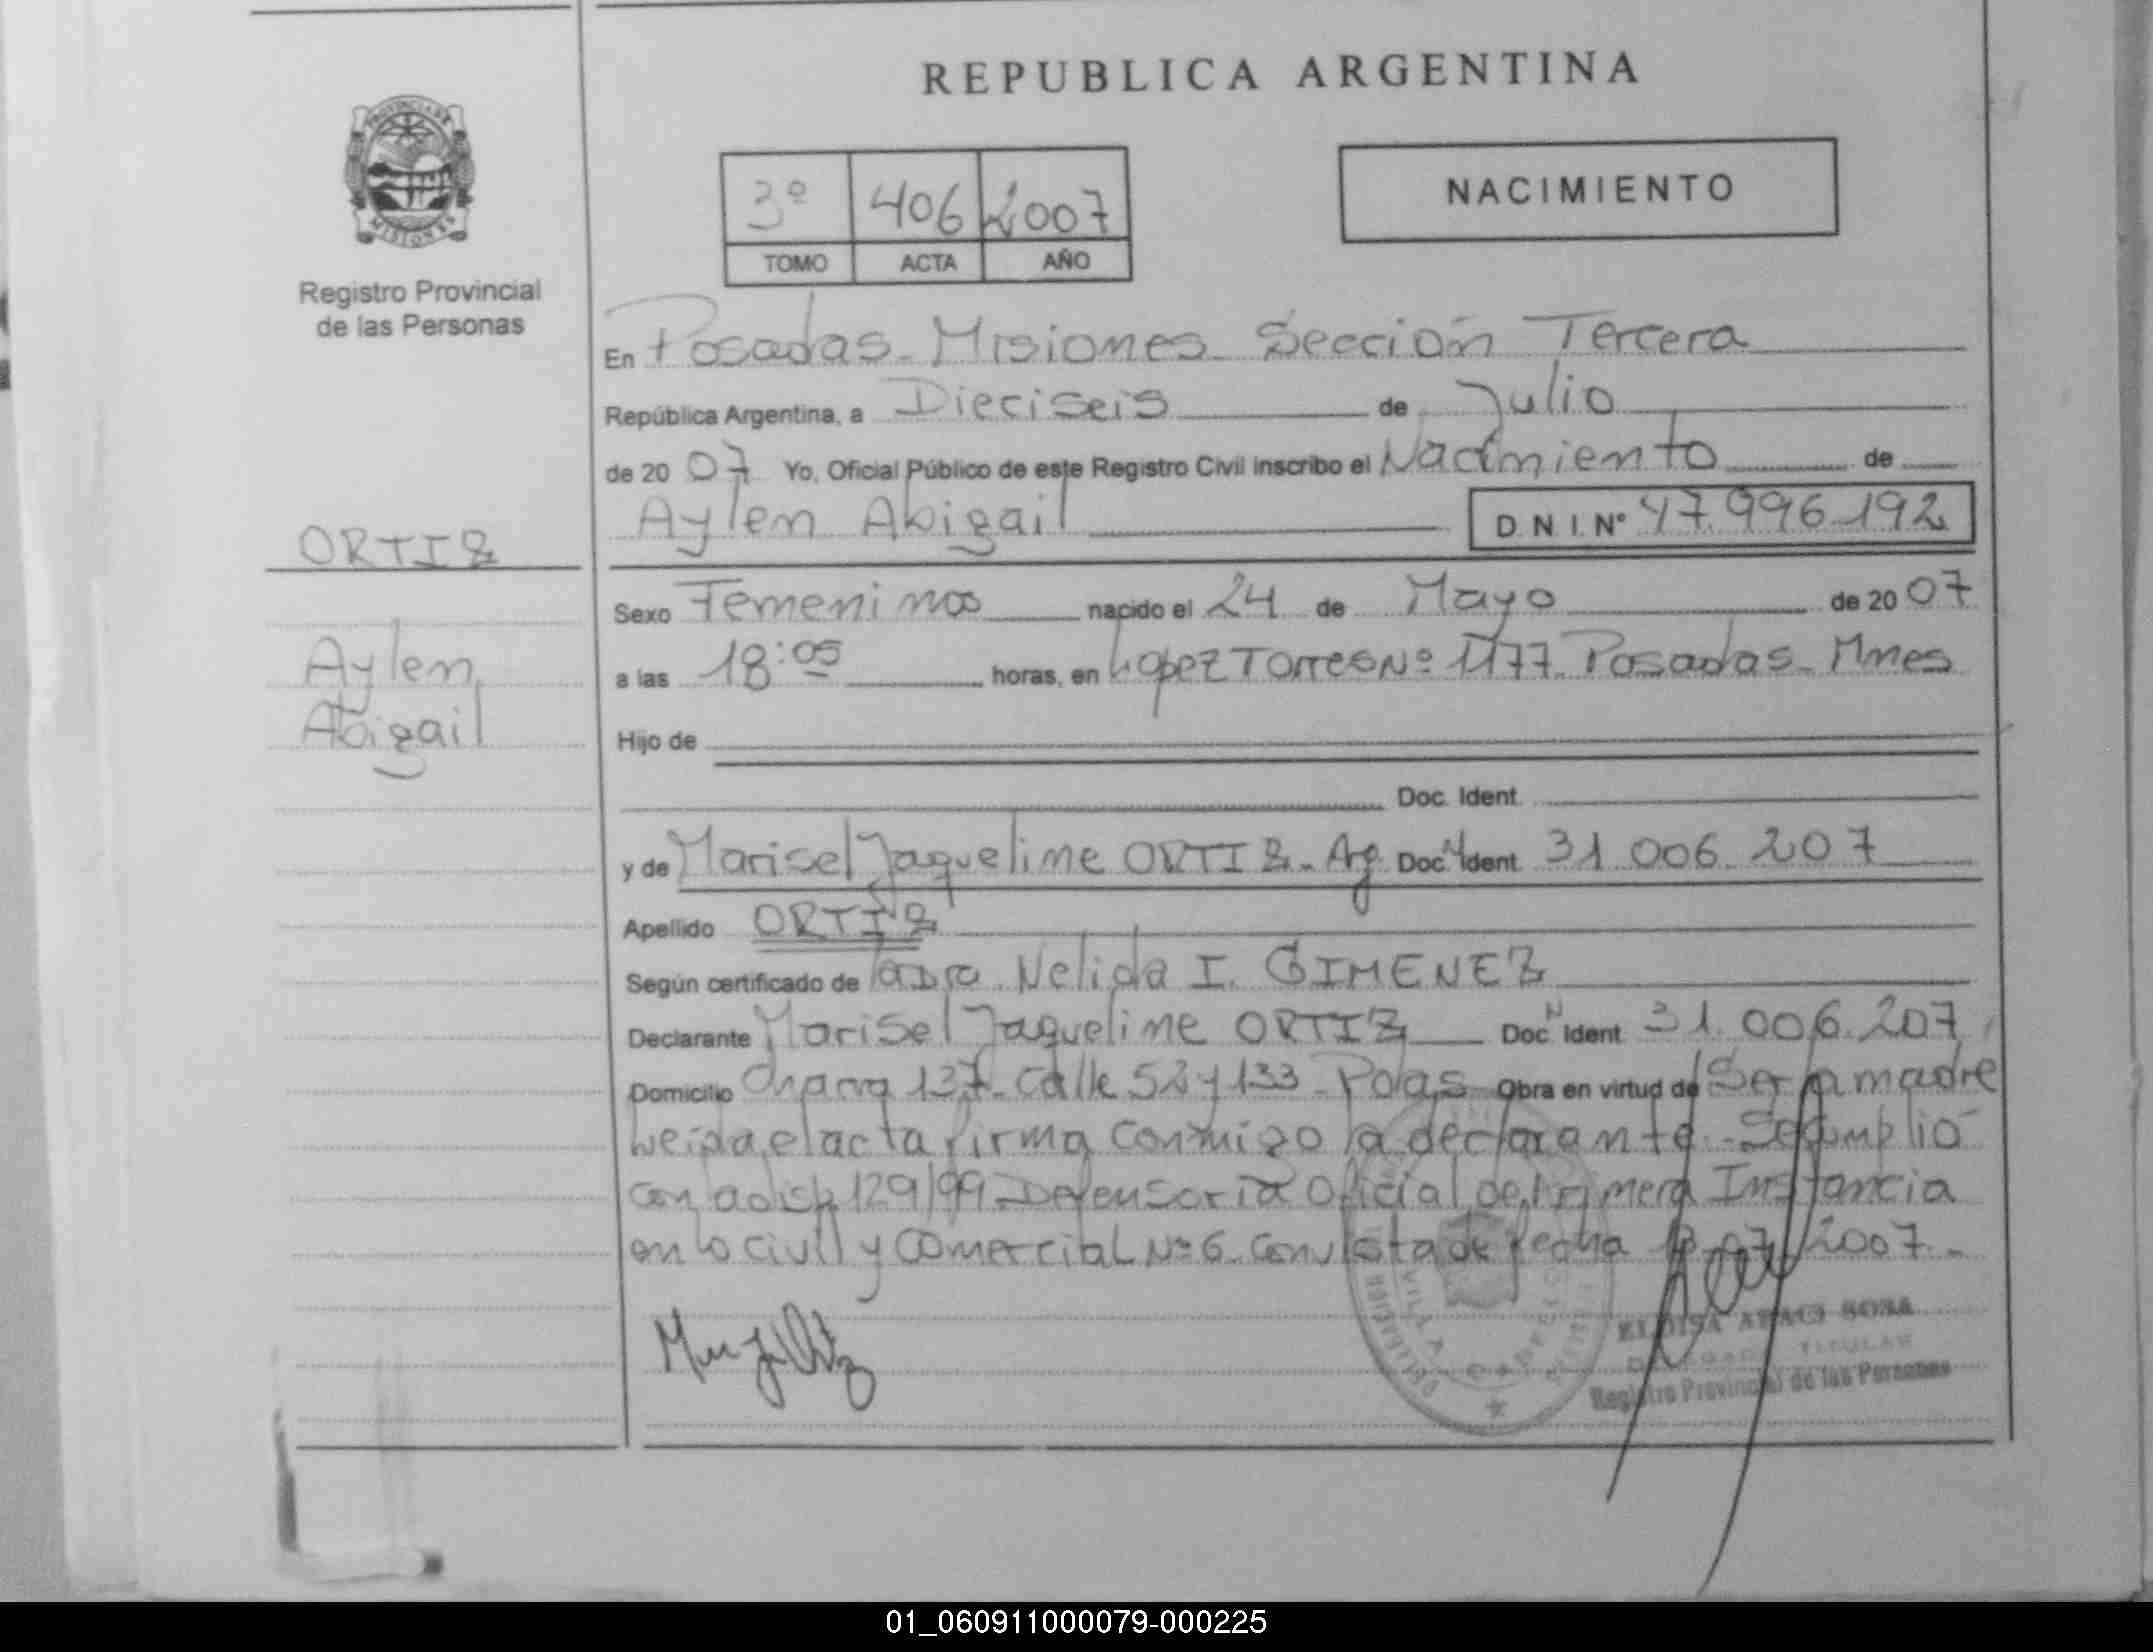 REPUBLICA ARGENTINA
PROVINCIA DE
MISIONES
Registro Provincial
de las Personas
3º 406 2007
TOMO ACTA AÑO
NACIMIENTO
En Posadas - Misiones - Sección Tercera
República Argentina, a Dieciseis de Julio
de 20 07 Yo, Oficial Público de este Registro Civil inscribo el Nacimiento de
Aylen Abigail D.N.I. Nº 47.996.192
ORTIZ
Aylen
Abigail
Sexo Femenino nacido el 24 de Mayo de 20 07
a las 18:05 horas, en Lopez Torres Nº 1177. Posadas - Mnes
Hijo de
Doc. Ident.
y de Marisel Jaqueline ORTIZ - Arg. Doc. Ident. 31.006.207
Apellido ORTIZ
Según certificado de Nelida I. GIMENEZ
Declarante Marisel Jaqueline ORTIZ Doc. Ident. 31.006.207
Domicilio Chacra 137 - Calle 52 y 133 - Pdas - Obra en virtud de Ser la madre
Leida el acta firma conmigo la declarante - Se cumplió
con la disp. 129/99 - Defensoria Oficial de Primera Instancia
en lo civil y Comercial Nº 6 - Con vista de fecha 07/2007 -
SOSA
TITULAR
Registro Provincial de las Personas
01_060911000079-000225